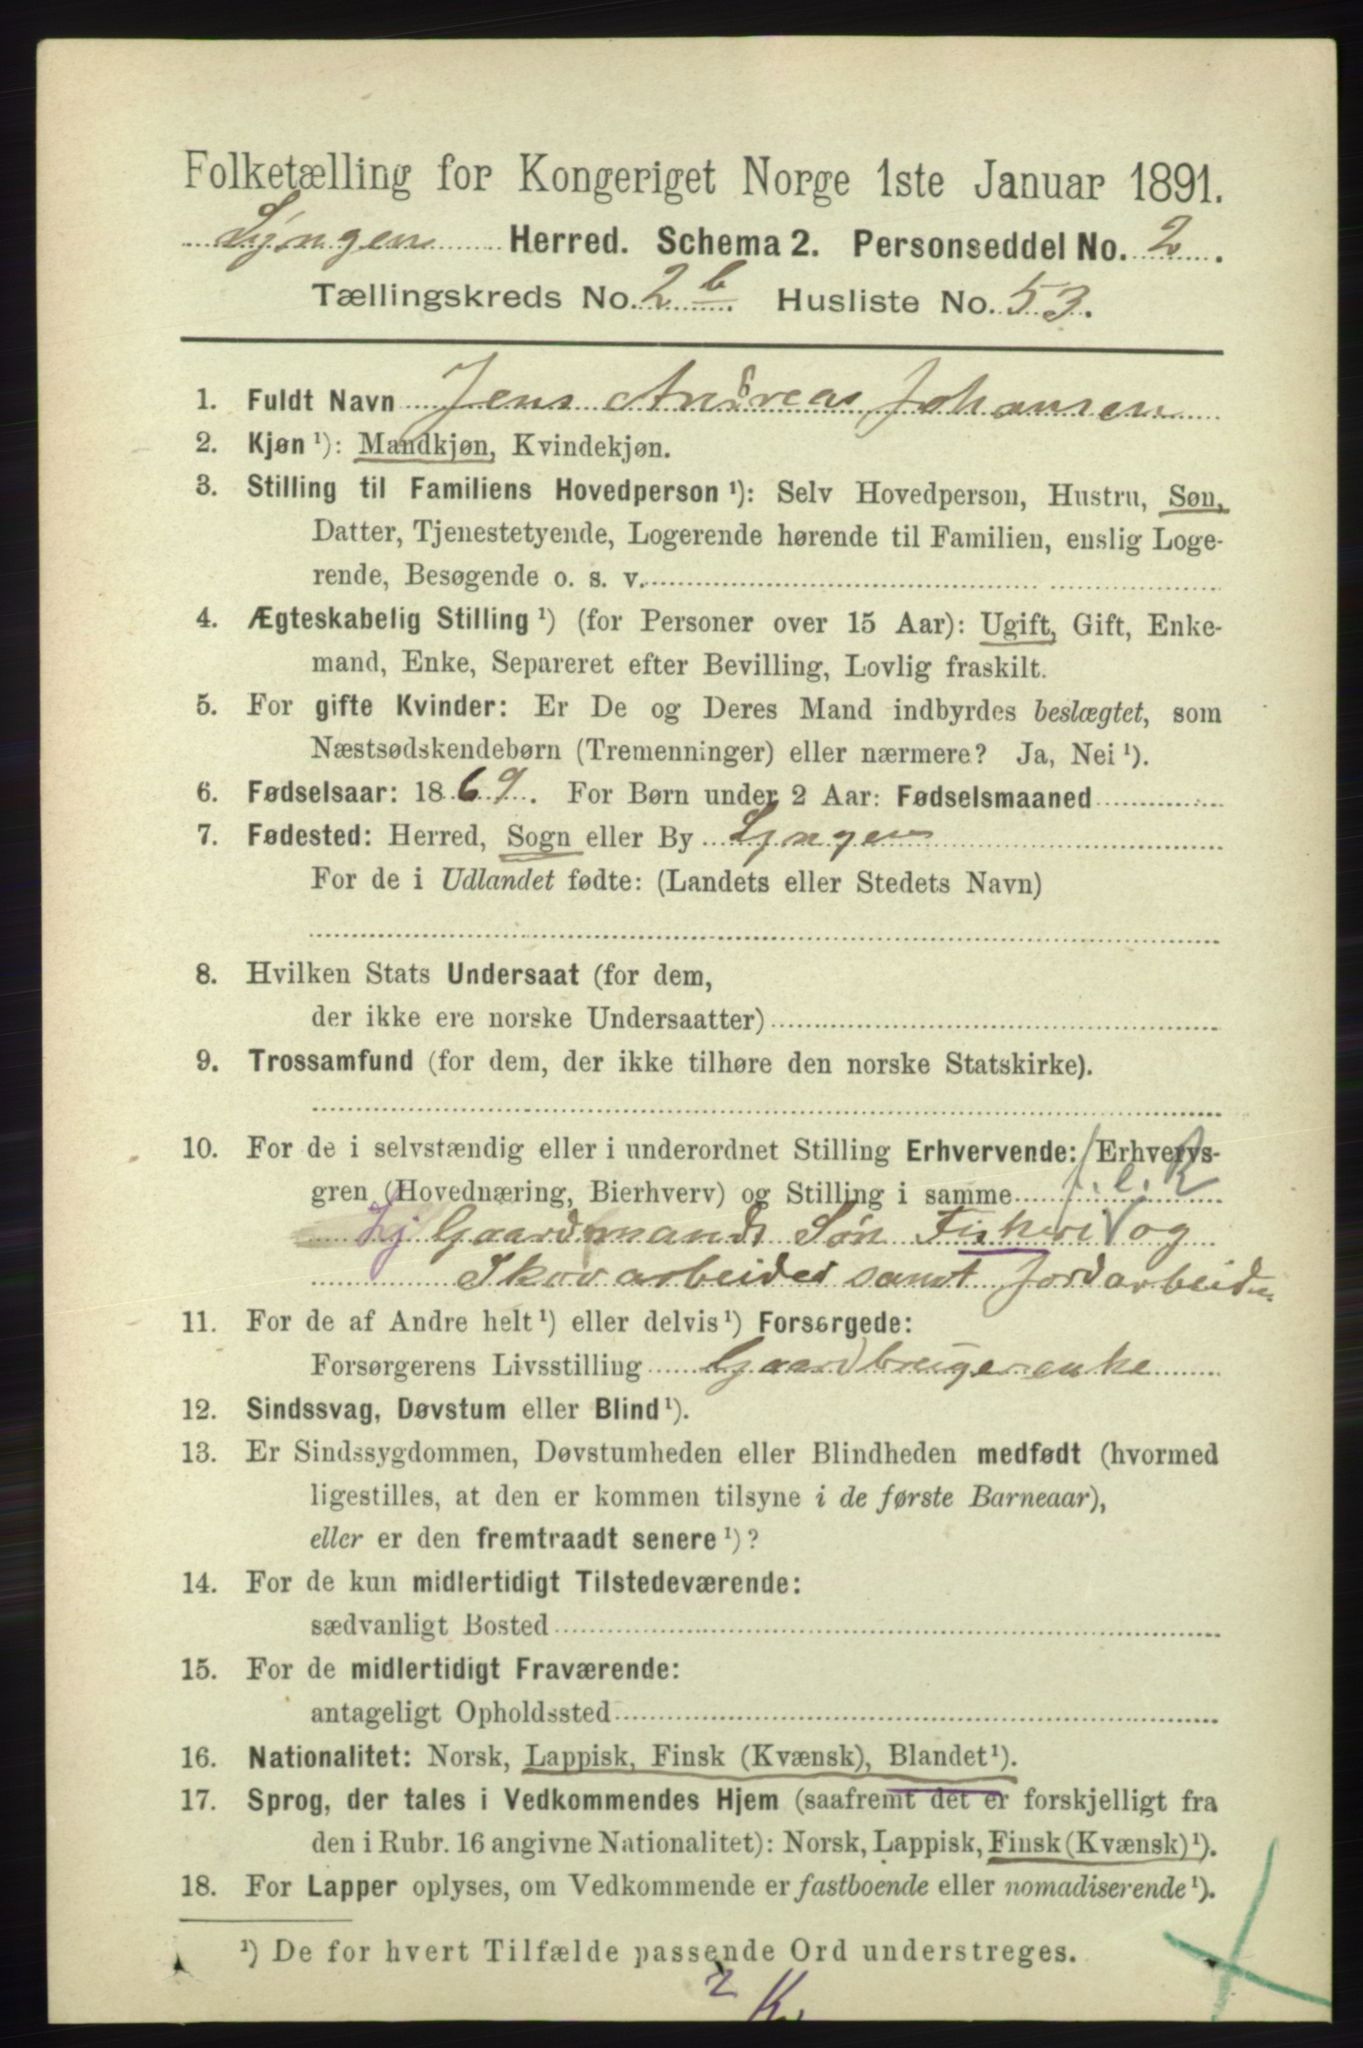 Folketælling for Kongeriget Norge 1ste Januar 1891.
Lyngen Herred. Schema 2. Personseddel No. 2.
Tællingskreds No. 2 b. Husliste No. 53.
1. Fuldt Navn Jens Andreas Johansen
2. Kjøn ¹): Mandkjøn, Kvindekjøn.
3. Stilling til Familiens Hovedperson ¹): Selv Hovedperson, Hustru, Søn,
Datter, Tjenestetyende, Logerende hørende til Familien, enslig Loge-
rende, Besøgende o. s. v.
4. Ægteskabelig Stilling ¹) (for Personer over 15 Aar): Ugift, Gift, Enke-
mand, Enke, Separeret efter Bevilling, Lovlig fraskilt.
5. For gifte Kvinder: Er De og Deres Mand indbyrdes beslægtet, som
Næstsødskendebørn (Tremenninger) eller nærmere? Ja, Nei ¹).
6. Fødselsaar: 1869. For Børn under 2 Aar: Fødselsmaaned
7. Fødested: Herred, Sogn eller By Lyngen
For de i Udlandet fødte: (Landets eller Stedets Navn)
8. Hvilken Stats Undersaat (for dem,
der ikke ere norske Undersaatter)
9. Trossamfund (for dem, der ikke tilhøre den norske Statskirke).
10. For de i selvstændig eller i underordnet Stilling Erhvervende: Erhvervs-
gren (Hovednæring, Bierhverv) og Stilling i samme
Gaardmands Søn Fisheri og
Skovarbeider samt Jordarbeider
11. For de af Andre helt ¹) eller delvis ¹) Forsørgede:
Forsørgerens Livsstilling Gaardbrugerenke
12. Sindssvag, Døvstum eller Blind ¹).
13. Er Sindssygdommen, Døvstumheden eller Blindheden medfødt (hvormed
ligestilles, at den er kommen tilsyne i de første Barneaar),
eller er den fremtraadt senere ¹)?
14. For de kun midlertidigt Tilstedeværende:
sædvanligt Bosted
15. For de midlertidigt Fraværende:
antageligt Opholdssted
16. Nationalitet: Norsk, Lappisk, Finsk (Kvænsk), Blandet ¹).
17. Sprog, der tales i Vedkommendes Hjem (saafremt det er forskjelligt fra
den i Rubr. 16 angivne Nationalitet): Norsk, Lappisk, Finsk (Kvænsk) ¹).
18. For Lapper oplyses, om Vedkommende er fastboende eller nomadiserende ¹).
¹) De for hvert Tilfælde passende Ord understreges.
2 K.